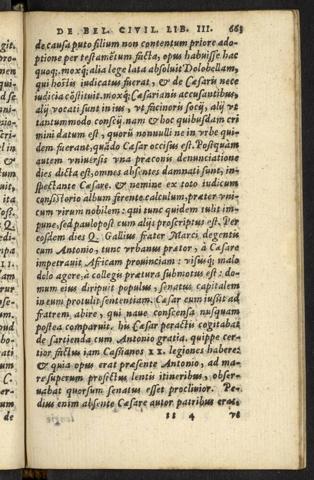 DE BEL. CIVIL. LIB. III. 663
de causa puto filium non contentum priore ado-
ptione per testamẽtum facta, opus habuisse hac
quoq; moxq; alia lege lata absoluit Dolobellam,
qui hostis iudicatus fuerat, & de Cæsaris nece
iudicia cõstituit. moxq; Cæsarianis accusantibus,
alij vocati sunt in ius, vt facinoris socij, alij vt
tantummodo conscij. nam & hoc quibusdam cri
mini datum est, quorũ nonnulli ne in vrbe qui-
dem fuerant, quãdo Cæsar occisus est. Postquàm
autem vniuersis vna præconis denunciatione
dies dicta est, omnes absentes damnati sunt, in-
spectante Cæsare, & nemine ex toto iudicum
consistorio album ferente calculum, præter vni-
cum virum nobilem: qui tunc quidem tulit im-
pune, sed paulo post cum alijs proscriptus est. Per
eosdem dies Q. Gallius frater Marci, degentis
cum Antonio, tunc vrbanus prætor, à Cæsare
impetrauit Africam prouinciam: visusq; malo
dolo agere, à collegis prætura submotus est: do-
mum eius diripuit populus, senatus capitalem
in eum protulit sententiam. Cæsar eum iussit ad
fratrem abire, qui naue conscensa nusquam
postea comparuit. his Cæsar peractis cogitabat
de sartienda cum Antonio gratia, quippe cer-
tior factus iam Casianos XX. legiones habere:
& quia opus erat præsente Antonio, ad ma-
re superum profectus lentis itineribus, obser-
uabat quorsum senatus esset procliuior. Pe-
dius enim absente Cæsare autor patribus erat,
ss 4 vt